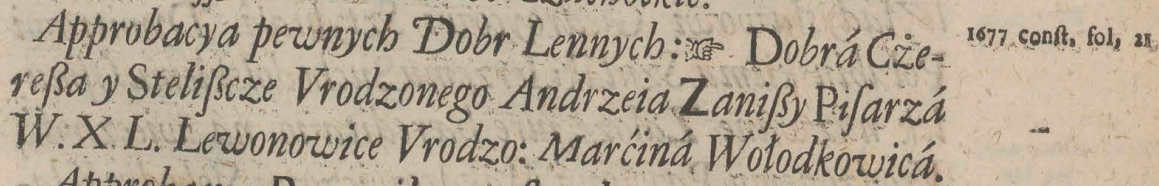 Approbacya pewnych Dobr Lennych:☞ Dobrá Cże-
reßa y Stelißcze Vrodzonego Andrzeia Zanißy Piſarzá
W. X. L. Lewonowice Vrodzo: Marćiná Wołodkowicá.
1677 conſt, fol, 21